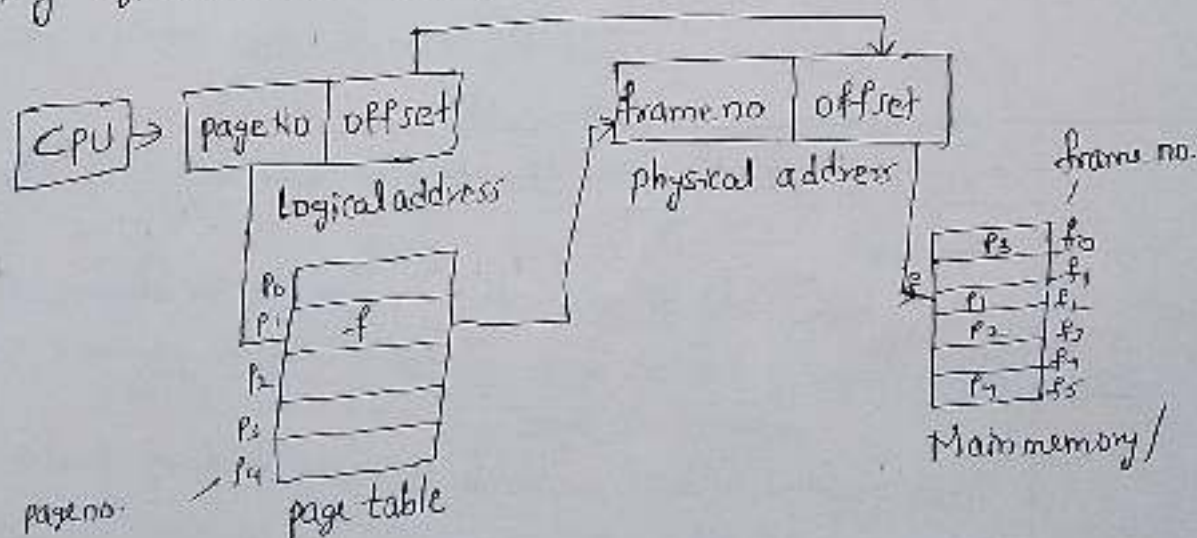 CPU
page No offset
Logical address
frame no offset
physical address
frame no.
P0
P1 f
P2
P3
P4
page no.
page table
P3 f0
P1
P2 f3
f4
P4 f5
Main memory/